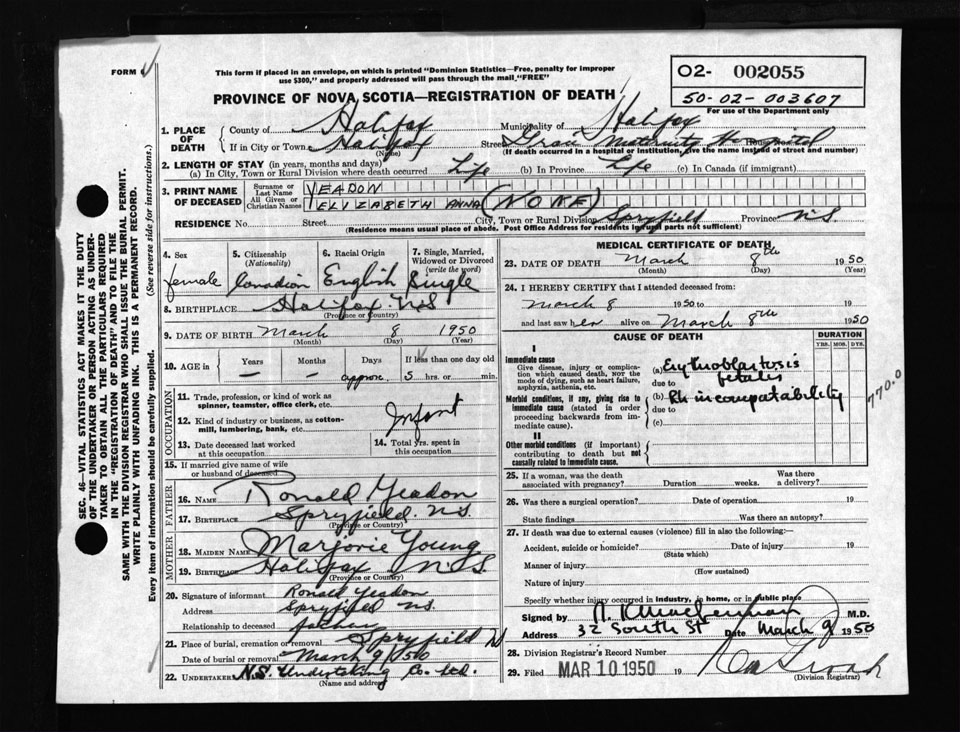 FORM
This form if placed in an envelope, on which is printed "Dominion Statistics—Free, penalty for improper
use $300," and properly addressed will pass through the mail "FREE"
PROVINCE OF NOVA SCOTIA—REGISTRATION OF DEATH
O2- 002055
50-02-003607
For use of the Department only
1. PLACE OF DEATH
County of Halifax Municipality of Halifax
If in City or Town Halifax Street Grace Maternity Hospital
(Name) (If death occurred in a hospital or institution, give the name instead of street and number)
2. LENGTH OF STAY (in years, months and days)
(a) In City, Town or Rural Division where death occurred Life (b) In Province Life (c) In Canada (if immigrant)
3. PRINT NAME OF DECEASED
Surname or Last Name YEADON
All Given or Christian Names ELIZABETH ANNA (NONE)
RESIDENCE No. Street City, Town or Rural Division Spryfield Province N.S
(Residence means usual place of abode. Post Office Address for residents in rural parts not sufficient)
4. Sex female
5. Citizenship (Nationality) Canadian
6. Racial Origin English
7. Single, Married, Widowed or Divorced (write the word) Single
8. BIRTHPLACE Halifax N.S
(Province or Country)
9. DATE OF BIRTH March 8 1950
(Month) (Day) (Year)
10. AGE in Years — Months — Days approx. If less than one day old 5 hrs. or min.
OCCUPATION
11. Trade, profession, or kind of work as spinner, teamster, office clerk, etc.
12. Kind of industry or business, as cotton-mill, lumbering, bank, etc. Infant
13. Date deceased last worked at this occupation
14. Total yrs. spent in this occupation
15. If married give name of wife or husband of deceased
FATHER
16. NAME Ronald Yeadon
17. BIRTHPLACE Spryfield. N.S.
(Province or Country)
MOTHER
18. MAIDEN NAME Marjorie Young
19. BIRTHPLACE Halifax N.S
(Province or Country)
20. Signature of informant Ronald Yeadon
Address Spryfield N.S.
Relationship to deceased father
21. Place of burial, cremation or removal Spryfield
Date of burial or removal March 9/50
22. UNDERTAKER N.S. Undertaking Co. Ltd.
(Name and address)
MEDICAL CERTIFICATE OF DEATH
23. DATE OF DEATH March 8th 1950
(Month) (Day) (Year)
24. I HEREBY CERTIFY that I attended deceased from:
March 8 1950 to 19
and last saw her alive on March 8th 1950
CAUSE OF DEATH
DURATION
YRS. MOS. DYS.
I
Immediate cause
Give disease, injury or complication which caused death, NOT the mode of dying, such as heart failure, asphyxia, asthenia, etc.
(a) Erythroblastosis fetalis
due to
Morbid conditions, if any, giving rise to immediate cause (stated in order proceeding backwards from immediate cause).
(b) Rh incompatability
due to
(c)
770.0
II
Other morbid conditions (if important) contributing to death but not causally related to immediate cause.
25. If a woman, was the death associated with pregnancy? Duration weeks. Was there a delivery?
26. Was there a surgical operation? Date of operation 19
State findings Was there an autopsy?
27. If death was due to external causes (violence) fill in also the following:—
Accident, suicide or homicide? Date of injury 19
(State which)
Manner of injury
(How sustained)
Nature of injury
Specify whether injury occurred in industry, in home, or in public place
Signed by M.D.
Address 32 South St Date March 9 1950
28. Division Registrar's Record Number
29. Filed MAR 10 1950 19
(Division Registrar)
SEC. 46—VITAL STATISTICS ACT MAKES IT THE DUTY
OF THE UNDERTAKER OR PERSON ACTING AS UNDER-
TAKER TO OBTAIN ALL THE PARTICULARS REQUIRED
IN THE "REGISTRATION OF DEATH" AND TO FILE THE
SAME WITH THE DIVISION REGISTRAR WHO SHALL ISSUE THE BURIAL PERMIT.
WRITE PLAINLY WITH UNFADING INK. THIS IS A PERMANENT RECORD.
Every item of information should be carefully supplied. (See reverse side for instructions.)